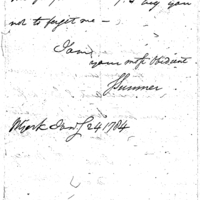 beg you
not to forget me —
I am
your most Obedient
J Sumner
York Jany 24 1784